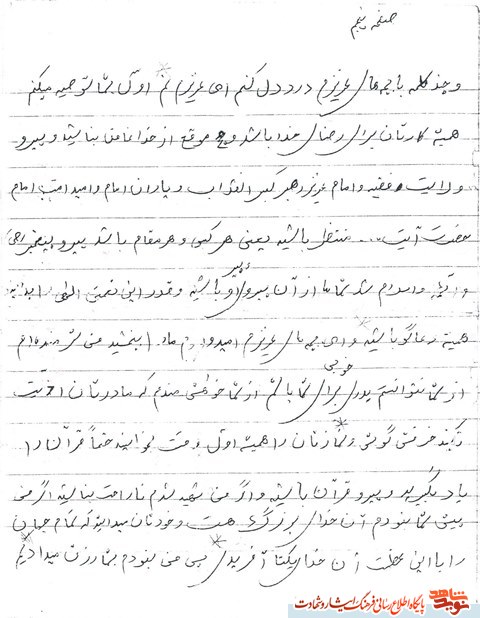 صفحه پنجم
و چند کلمه با بچه های عزیزم درد دل کنم ای عزیزم اول بشما توصیه میکنم
همیشه کارتان برای رضای خدا باشد و هیچ موقع از خدا غافل نباشید و پیرو
ولایت فقیه و امام عزیز رهبر کبیر انقلاب و یاران امام و امید امت امام
حضرت آیت ... منتظر باشید یعنی هر کسی و هر مقام باشد پیرو
و اسلام شد شما از آن پیروی باشید و قدر این نعمت الهی را بدانید
همیشه دعاگو باشید و ای بچه های عزیزم امیدوارم مرا ببخشید من شرمنده ام
از شما نتوانستم پدری خوبی برای شما باشم از شما خواهش مندم که مادرتان اذیت
نکنید حرفش گوش و نمازتان را همیشه اول وقت بخوانید حتماً قرآن را
یاد بگیرید و پیرو قرآن باشید و اگر من شهید شدم ناراحت نباشید اگر من
پیش شما نبودم آن خدای بزرگ هست و خودتان میدانید که تمام جهان
را با این عظمت آن خدا یکتا آفرید پس من نبودم بشما رزق میداد
نوید شاهد
پایگاه اطلاع رسانی فرهنگ ایثار و شهادت